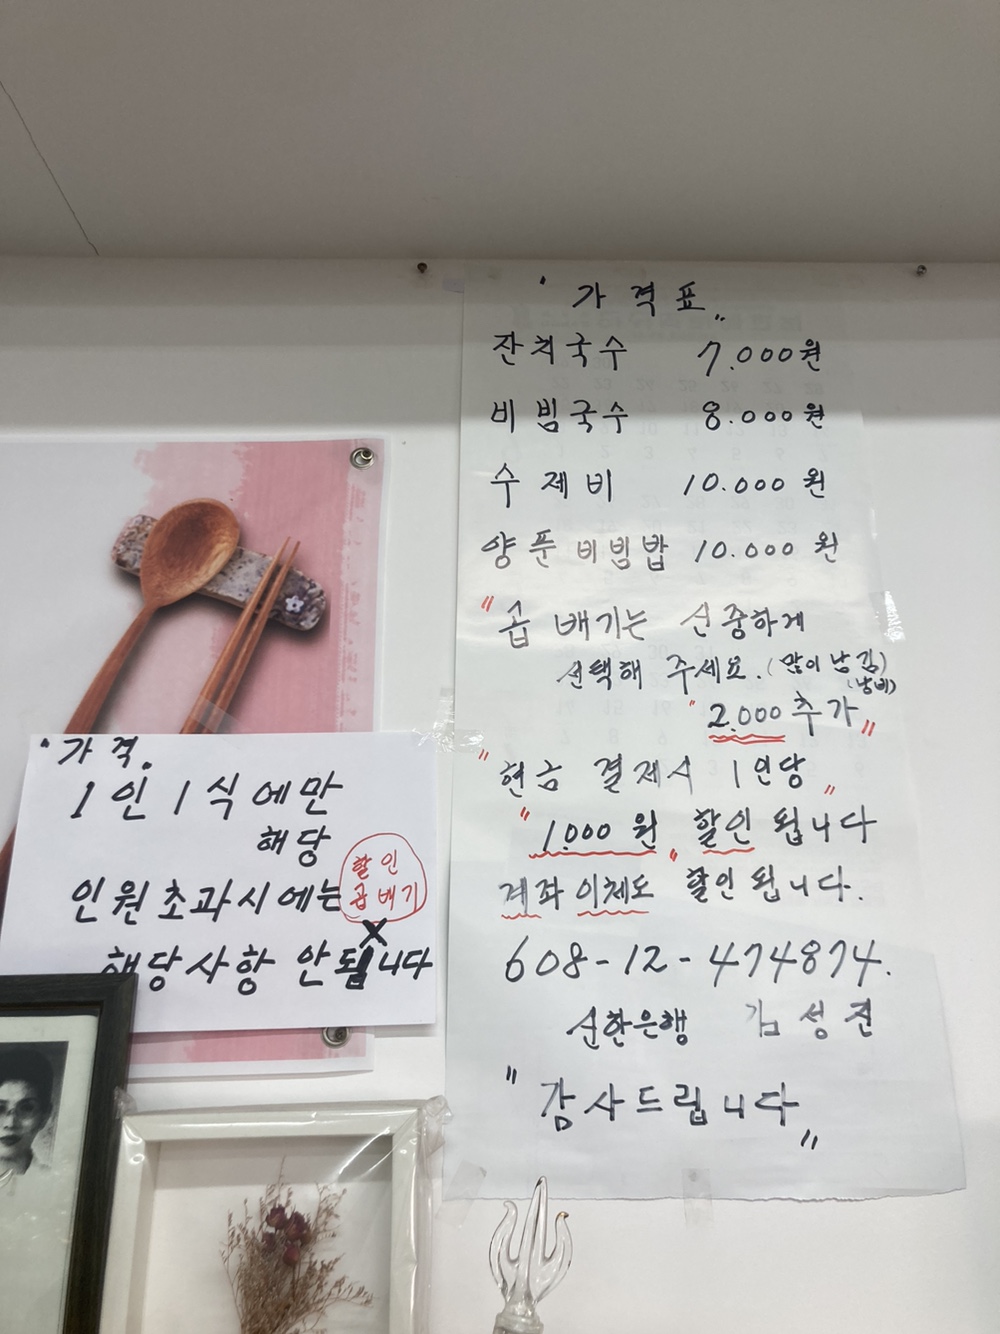 " 가격표 "
잔치국수 7.000원
비빔국수 8.000원
수제비 10.000원
양푼비빔밥 10.000원
" 곱배기는 신중하게
선택해 주세요. (많이 남김)
(낭비)
" 2.000 추가 "
" 현금 결제시 1인당 "
" 1.000원 " 할인 됩니다
계좌 이체도 할인 됩니다.
608-12-474874.
신한은행 김성진
" 감사드립니다 "
" 가격.
1인 1식에만
해당
인원초과시에는 할인
곱배기
X
해당사항 안됩니다